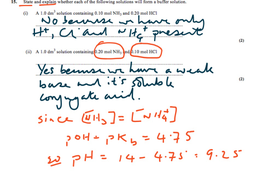 15. State and explain whether each of the following solutions will form a buffer solution.
(i) A 1.0 dm³ solution containing 0.10 mol NH₃ and 0.20 mol HCl
No because we have only
H⁺, Cl⁻ and NH₄⁺ present
(2)
(ii) A 1.0 dm³ solution containing 0.20 mol NH₃ and 0.10 mol HCl
Yes because we have a weak
base and it's soluble
conjugate acid.
(2)
since [NH₃] = [NH₄⁺]
pOH = pKb = 4.75
so pH = 14 - 4.75 = 9.25